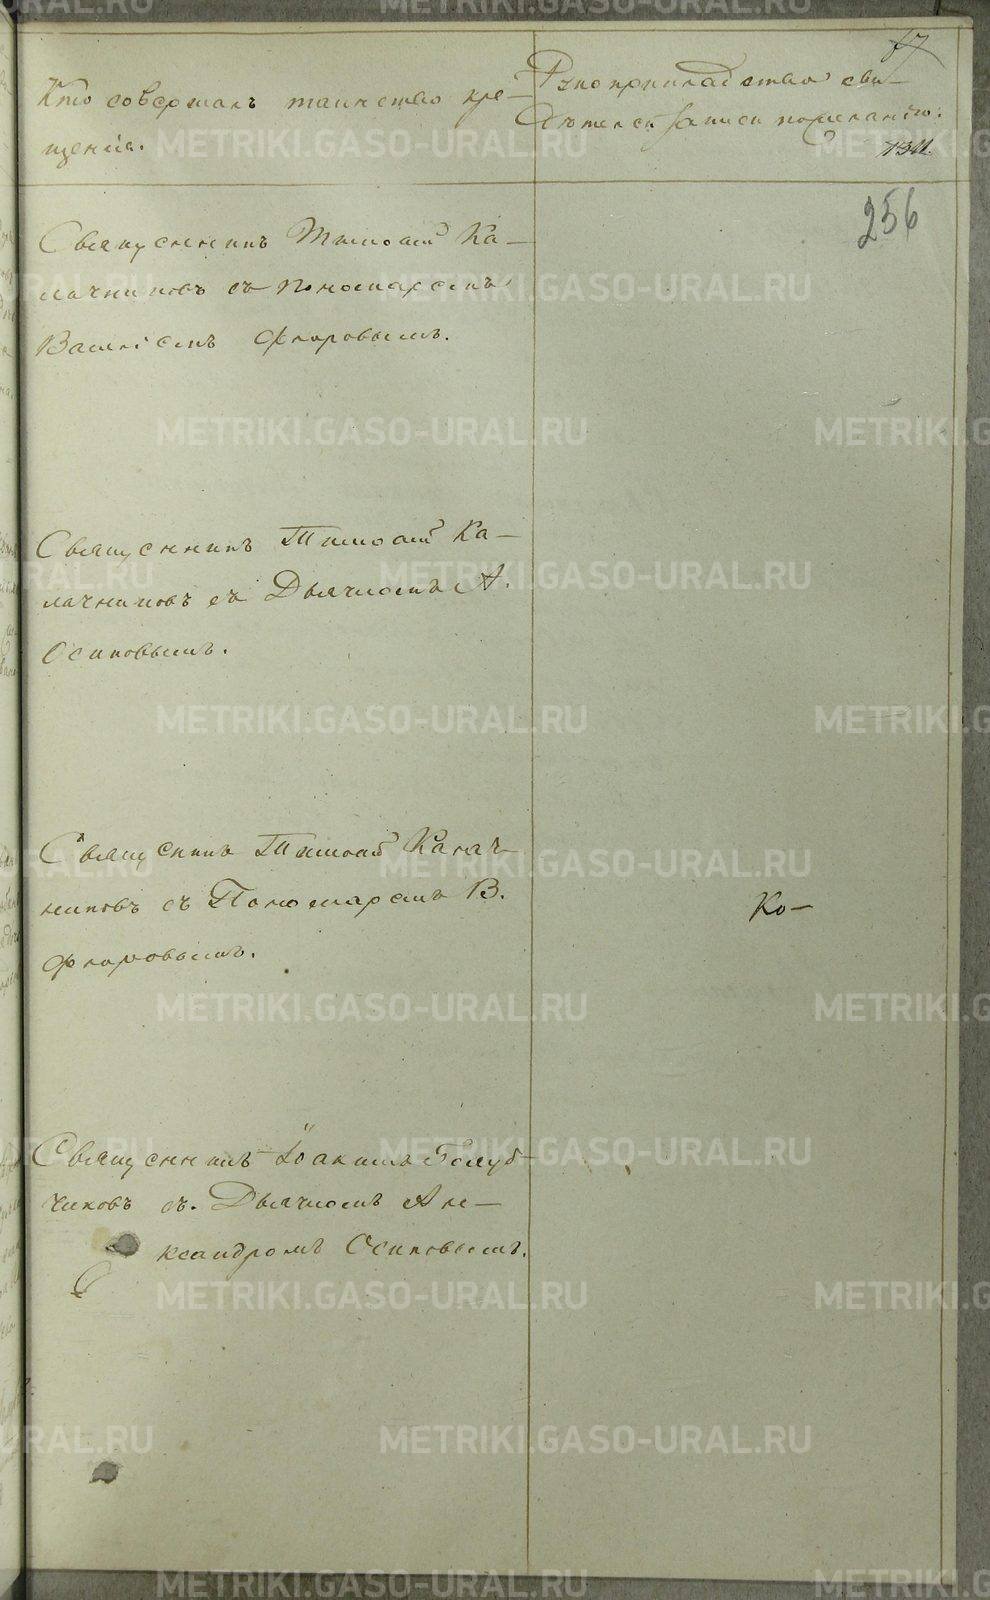 Кто совершалъ таинство кре-
щенія.
Рукоприкладство сви-
дѣтелей записи по желанію.
67
1311.
256
Священникъ Тимоѳей Ка-
лачниковъ съ пономаремъ
Василіемъ Флоровымъ.
Священникъ Тимоѳей Ка-
лачниковъ съ Дьячкомъ А.
Осиповымъ.
Священникъ Тимоѳей Калач-
никовъ съ Пономаремъ В.
Флоровымъ.
Ко-
Священникъ Іоакимъ Голуб-
чиковъ съ. Дьячкомъ Але-
ксандромъ Осиповымъ.
METRIKI.GASO-URAL.RU